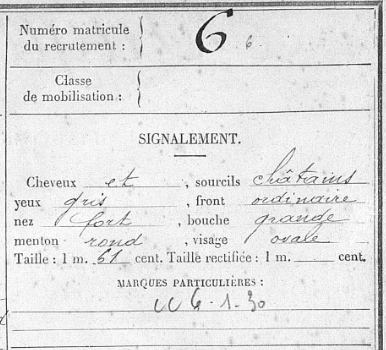 Numéro matricule
du recrutement : 6 6
Classe
de mobilisation :
SIGNALEMENT.
Cheveux et, sourcils châtains
yeux gris, front ordinaire
nez fort, bouche grande
menton rond, visage ovale
Taille : 1 m. 61 cent. Taille rectifiée : 1 m. cent.
MARQUES PARTICULIÈRES :
6-1-30